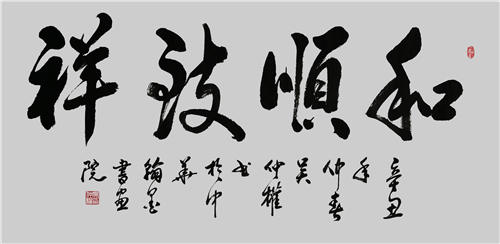 和順致祥
辛丑年仲春吴仲權书於中華翰墨書画院